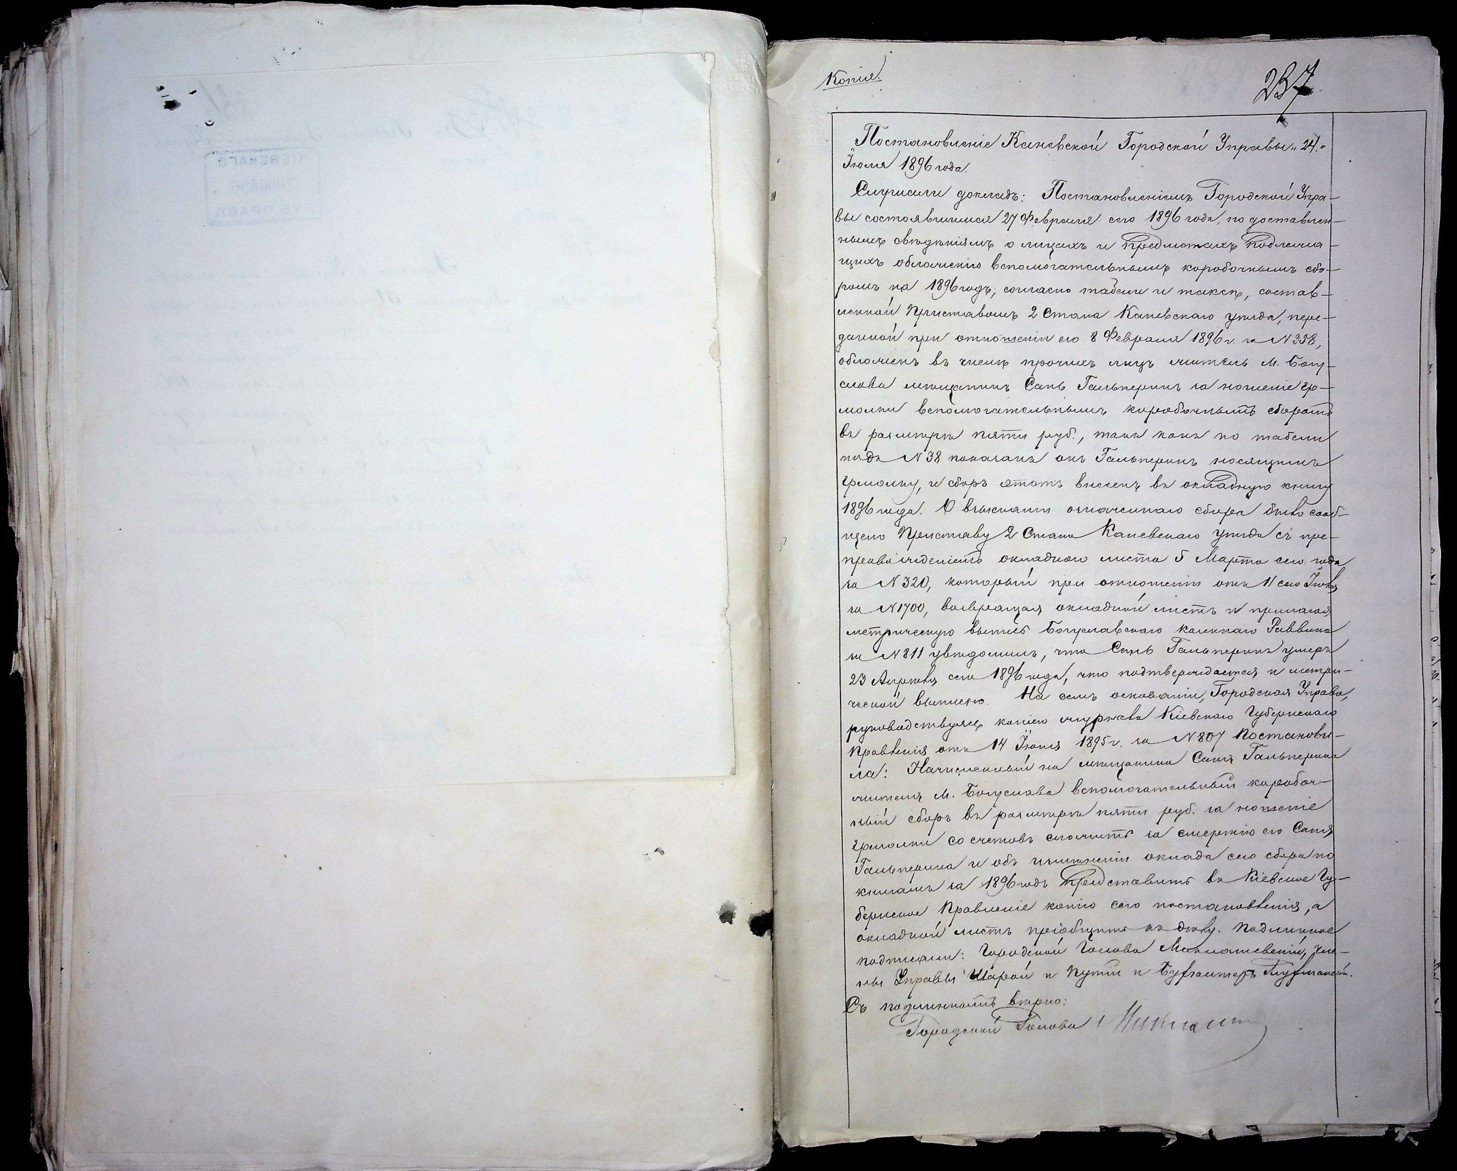 Копія.
237
Постановленіе Каневской Городской Управы „24"
Іюля 1896 года.
Слушали докладъ: Постановленіемъ Городской Упра-
вы состоявшимся 27 Февраля сего 1896 года, по доставлен-
нымъ свѣдѣніямъ о лицахъ и предметахъ подлежа-
щихъ обложенію вспомогательнымъ коробочнымъ сбо-
ромъ на 1896 годъ, согласно табели и таксѣ, состав-
ленной Приставомъ 2 Стана Каневскаго уѣзда, пере-
данной при отношеніи его 8 Февраля 1896 г. за N 358,
обложенъ въ числѣ прочихъ лицъ житель м. Богу-
слава мѣщанинъ Гальперинъ за ношеніе ер-
молки вспомогательнымъ коробочнымъ сборомъ
въ размѣрѣ пяти руб., такъ какъ по табели
подъ N 38 показанъ онъ Гальперинъ носящимъ
ермолку, и сборъ этотъ внесенъ въ окладную книгу
1896 года. О взысканіи означеннаго сбора было сооб-
щено Приставу 2 Стана Каневскаго уѣзда съ пре-
провожденіемъ окладного листа 5 Марта сего года
за N 320, который при отношеніи отъ 11 сего Іюля
за N 1700, возвращая окладной листъ и прилагая
метрическую выпись Богуславскаго казеннаго Раввина
за N 811 увѣдомилъ, что Гальперинъ умеръ
23 Апрѣля сего 1896 года, что подтверждается и метри-
ческой выписью. На семъ основаніи, Городская Управа,
руководствуясь копіею журнала Кіевскаго Губернскаго
Правленія отъ 14 Іюля 1895 г. за N 807 Постанови-
ла: Начисленный на мѣщанина Гальперина
жителя м. Богуслава вспомогательный коробоч-
ный сборъ въ размѣрѣ пяти руб. за ношеніе
ермолки со счетовъ сложить за смертію его
Гальперина и объ оклада сего сбора по
книгамъ за 1896 годъ представить въ Кіевское Гу-
бернское Правленіе копію сего постановленія, а
окладной листъ пріобщить къ дѣлу. Подлинное
подписали: Городской Голова Чле-
ны Управы Шарай и Путій и Бухгалтеръ
Съ подлиннымъ вѣрно:
Городской Голова